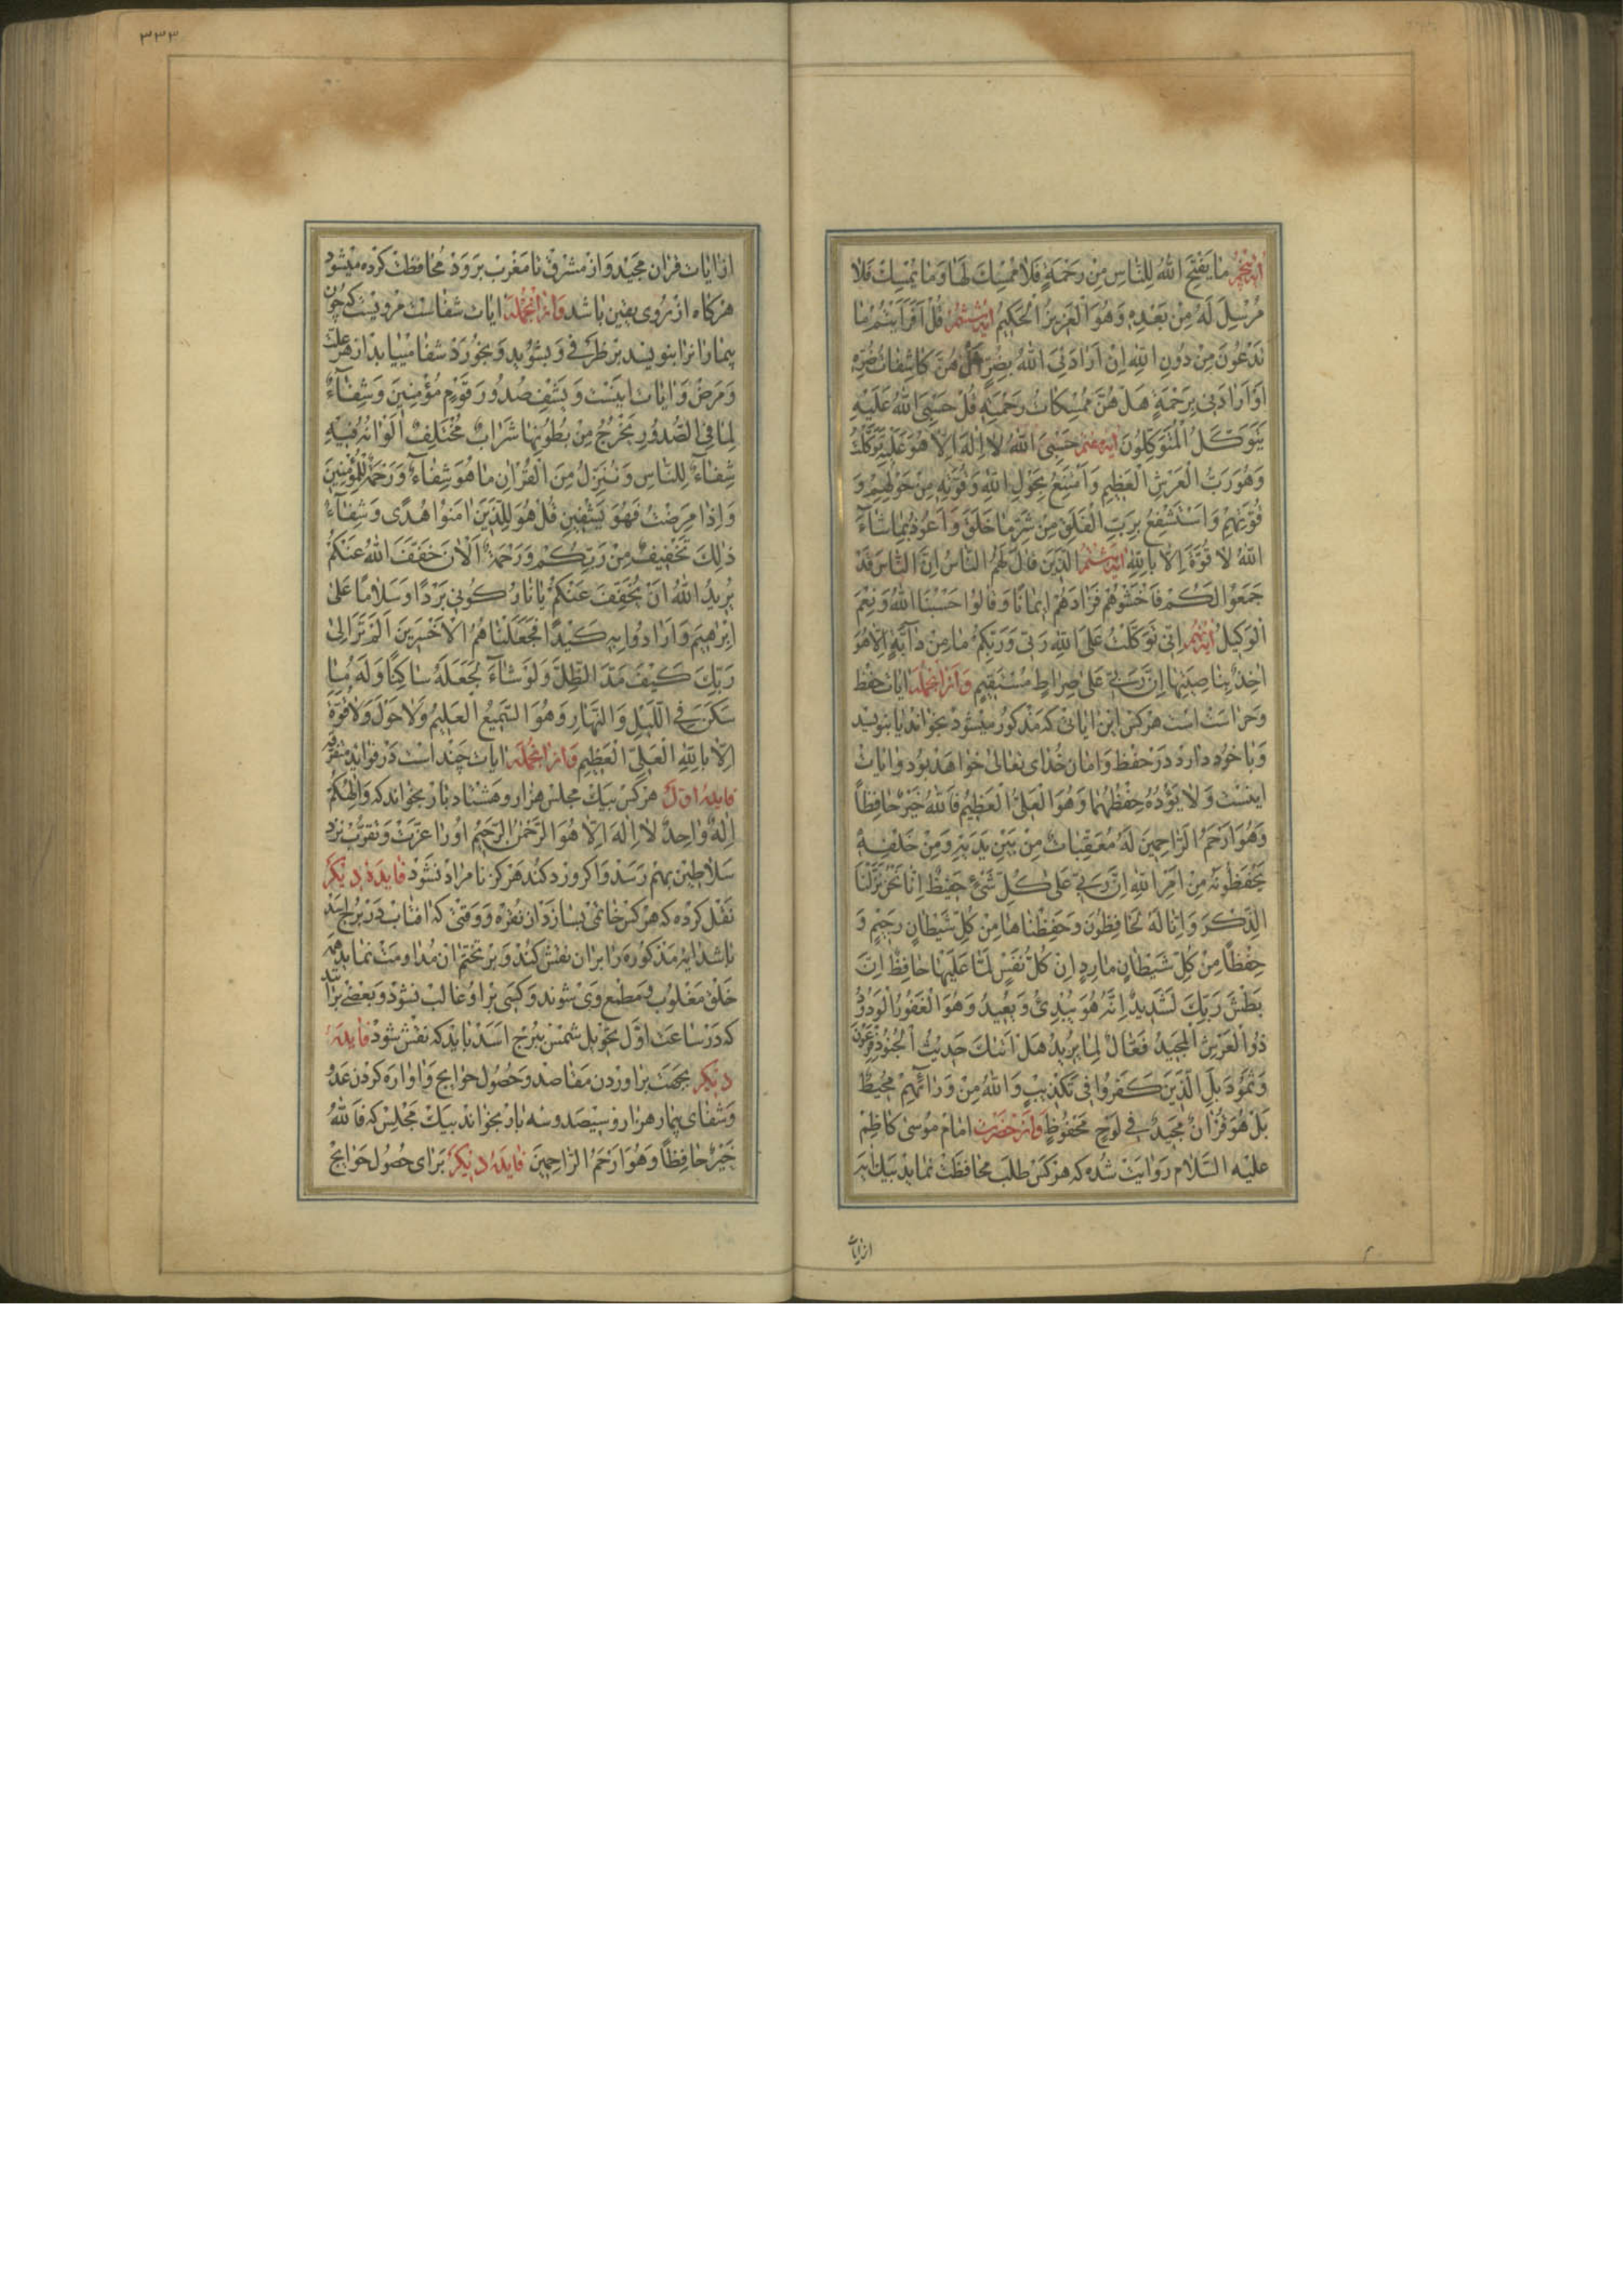 ایه پنجم مَا یَفْتَحِ اللهُ لِلنَّاسِ مِنْ رَحْمَةٍ فَلَا مُمْسِكَ لَهَا وَمَا یُمْسِكْ فَلَا
مُرْسِلَ لَهُ مِنْ بَعْدِهِ وَهُوَ الْعَزِیزُ الْحَكِیمُ ایه ششم قُلْ اَفَرَاَیْتُمْ مَا
تَدْعُونَ مِنْ دُونِ اللهِ اِنْ اَرَادَنِیَ اللهُ بِضُرٍّ هَلْ هُنَّ كَاشِفَاتُ ضُرِّهِ
اَوْ اَرَادَنِی بِرَحْمَةٍ هَلْ هُنَّ مُمْسِكَاتُ رَحْمَتِهِ قُلْ حَسْبِیَ اللهُ عَلَیْهِ
یَتَوَكَّلُ الْمُتَوَكِّلُونَ حَسْبِیَ اللهُ لَا اِلٰهَ اِلَّا هُوَ عَلَیْهِ تَوَكَّلْتُ
وَهُوَ رَبُّ الْعَرْشِ الْعَظِیمِ وَاَمْتَنِعُ بِحَوْلِ اللهِ وَقُوَّتِهِ مِنْ حَوْلِهِمْ وَ
قُوَّتِهِمْ وَاَسْتَشْفِعُ بِرَبِّ الْفَلَقِ مِنْ شَرِّ مَا خَلَقَ وَاَعُوذُ بِمَا شَاءَ
اللهُ لَا قُوَّةَ اِلَّا بِاللهِ الَّذِینَ قَالَ لَهُمُ النَّاسُ اِنَّ النَّاسَ قَدْ
جَمَعُوا لَكُمْ فَاخْشَوْهُمْ فَزَادَهُمْ اِیمَانًا وَقَالُوا حَسْبُنَا اللهُ وَنِعْمَ
الْوَكِیلُ اِنِّی تَوَكَّلْتُ عَلَی اللهِ رَبِّی وَرَبِّكُمْ مَا مِنْ دَابَّةٍ اِلَّا هُوَ
اٰخِذٌ بِنَاصِیَتِهَا اِنَّ رَبِّی عَلٰی صِرَاطٍ مُسْتَقِیمٍ وَازانجمله ایات حفظ
وحراست است هركس این ایاتی كه مذكور میشود بخواند یا بنویسد
وبا خود دارد در حفظ وامان خدای تعالی خواهد بود وایات
اینست وَلَا یَؤُدُهُ حِفْظُهُمَا وَهُوَ الْعَلِیُّ الْعَظِیمُ فَاللهُ خَیْرٌ حَافِظًا
وَهُوَ اَرْحَمُ الرَّاحِمِینَ لَهُ مُعَقِّبَاتٌ مِنْ بَیْنِ یَدَیْهِ وَمِنْ خَلْفِهِ
یَحْفَظُونَهُ مِنْ اَمْرِ اللهِ اِنَّ رَبِّی عَلٰی كُلِّ شَیْءٍ حَفِیظٌ اِنَّا نَحْنُ نَزَّلْنَا
الذِّكْرَ وَاِنَّا لَهُ لَحَافِظُونَ وَحَفِظْنَاهَا مِنْ كُلِّ شَیْطَانٍ رَجِیمٍ وَ
حِفْظًا مِنْ كُلِّ شَیْطَانٍ مَارِدٍ اِنْ كُلُّ نَفْسٍ لَمَّا عَلَیْهَا حَافِظٌ اِنَّ
بَطْشَ رَبِّكَ لَشَدِیدٌ اِنَّهُ هُوَ یُبْدِئُ وَیُعِیدُ وَهُوَ الْغَفُورُ الْوَدُودُ
ذُو الْعَرْشِ الْمَجِیدُ فَعَّالٌ لِمَا یُرِیدُ هَلْ اَتٰیكَ حَدِیثُ الْجُنُودِ فِرْعَوْنَ
وَثَمُودَ بَلِ الَّذِینَ كَفَرُوا فِی تَكْذِیبٍ وَاللهُ مِنْ وَرَائِهِمْ مُحِیطٌ
بَلْ هُوَ قُرْاٰنٌ مَجِیدٌ فِی لَوْحٍ مَحْفُوظٍ وازحضرت امام موسی كاظم
علیه السلام روایت شده كه هركس طلب محافظت نماید بیك ایه
از ایات
٣٣٣
از ایات قران مجید واز مشرق تا مغرب برود محافظت كرده میشود
هرگاه از روی یقین باشد وازانجمله ایات شفاست مرویست كه چون
بیمار انرا بنویسد بر ظرفی وبشوید وبخورد شفا مییابد از هر علت
ومرض وایات اینست وَیَشْفِ صُدُورَ قَوْمٍ مُؤْمِنِینَ وَشِفَاءٌ
لِمَا فِی الصُّدُورِ یَخْرُجُ مِنْ بُطُونِهَا شَرَابٌ مُخْتَلِفٌ اَلْوَانُهُ فِیهِ
شِفَاءٌ لِلنَّاسِ وَنُنَزِّلُ مِنَ الْقُرْاٰنِ مَا هُوَ شِفَاءٌ وَرَحْمَةٌ لِلْمُؤْمِنِینَ
وَاِذَا مَرِضْتُ فَهُوَ یَشْفِینِ قُلْ هُوَ لِلَّذِینَ اٰمَنُوا هُدًی وَشِفَاءٌ
ذٰلِكَ تَخْفِیفٌ مِنْ رَبِّكُمْ وَرَحْمَةٌ اَلْاٰنَ خَفَّفَ اللهُ عَنْكُمْ
یُرِیدُ اللهُ اَنْ یُخَفِّفَ عَنْكُمْ یَا نَارُ كُونِی بَرْدًا وَسَلَامًا عَلٰی
اِبْرٰهِیمَ وَاَرَادُوا بِهِ كَیْدًا فَجَعَلْنَاهُمُ الْاَخْسَرِینَ اَلَمْ تَرَ اِلٰی
رَبِّكَ كَیْفَ مَدَّ الظِّلَّ وَلَوْ شَاءَ لَجَعَلَهُ سَاكِنًا وَلَهُ مَا
سَكَنَ فِی اللَّیْلِ وَالنَّهَارِ وَهُوَ السَّمِیعُ الْعَلِیمُ وَلَا حَوْلَ وَلَا قُوَّةَ
اِلَّا بِاللهِ الْعَلِیِّ الْعَظِیمِ وازانجمله ایات چند است در فواید متفرقه
فایدهٔ اول هركس بیك مجلس هزار وهشتاد بار بخواند كه وَاِلٰهُكُمْ
اِلٰهٌ وَاحِدٌ لَا اِلٰهَ اِلَّا هُوَ الرَّحْمٰنُ الرَّحِیمُ اورا عزت وتقرب نزد
سلاطین بهم رسد واگر ورد كند هرگز نامراد نشود فایدهٔ دیگر
نقل كرده كه هركس خاتمی بسازد از نقره ووقتی كه افتاب در برج اسد
باشد ایه مذكوره را بران نقش كند وبر تختم ان مداومت نماید همه
خلق مغلوب ومطیع وی شوند وكسی براو غالب نشود وبعضی برانند
كه در ساعت اول تحویل شمس ببرج اسد باید كه نقش شود فایدهٔ
دیگر بجهت براوردن مقاصد وحصول حوایج واواره كردن عدو
وشفای بیمار هزار وسیصد وسه بار بخواند بیك مجلس كه فَاللهُ
خَیْرٌ حَافِظًا وَهُوَ اَرْحَمُ الرَّاحِمِینَ فایدهٔ دیگر برای حصول حوایج